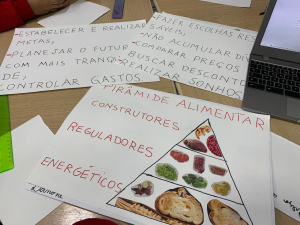 ESTABELECER E REALIZAR
METAS;
PLANEJAR O FUTUR
COM MAIS TRANQ
DE;
CONTROLAR GASTOS.
FAZER ESCOLHAS RES
SÁVEIS;
NÃO ACUMULAR DÍ
COMPARAR PREÇOS
BUSCAR DESCONTO
REALIZAR SONHOS
PIRÂMIDE ALIMENTAR
CONSTRUTORES
REGULADORES
ENERGÉTICOS